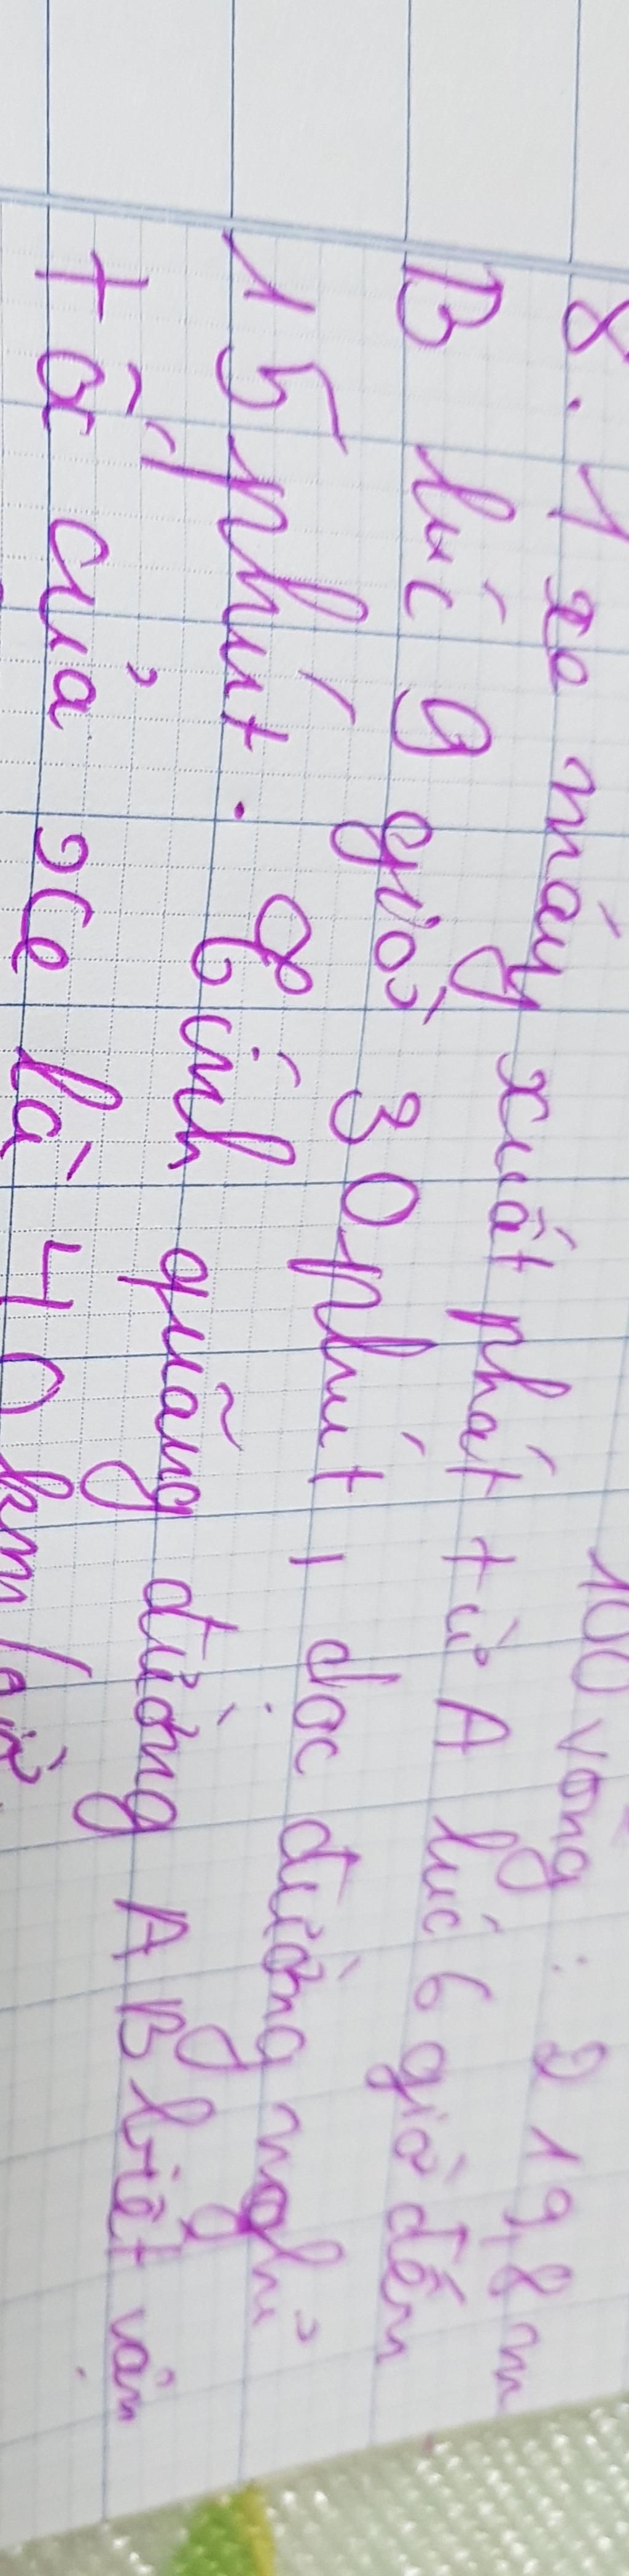 100 vòng : 219,8 m
8. 1 xe máy xuất phát từ A lúc 6 giờ đến
B lúc 9 giờ 30 phút, dọc đường nghỉ
15 phút. Tính quãng đường AB biết vận
tốc của xe là 40 km/giờ.